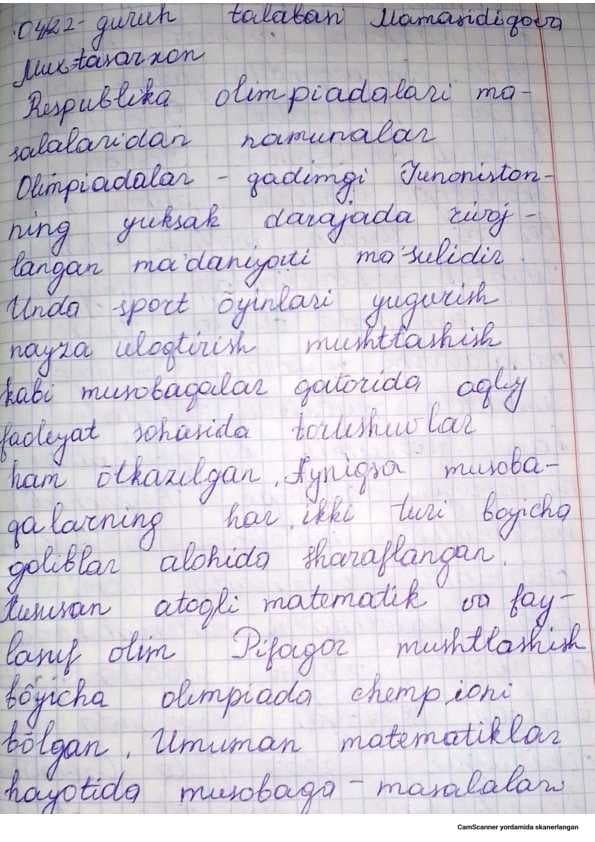 0422-guruh talabasi Mamasidiqova
Muxtasarxon
Respublika olimpiadalari ma-
salalaridan namunalar
Olimpiadalar - qadimgi Yunoniston-
ning yuksak darajada rivoj-
langan ma'daniyati ma'sulidir.
Unda sport öyinlari yugurish
nayza uloqtirish mushtlashish
kabi musobaqalar qatorida aqliy
faoleyat sohasida tortishuvlar
ham ötkazilgan. Ayniqsa musoba-
qalarning har ikki turi boyicha
goliblar alohida sharaflangan.
Xususan atoqli matematik va fay-
lasuf olim Pifagor mushtlashish
böyicha olimpiada chempioni
bölgan. Umuman matematiklar
hayotida musobaqa - masalalar
CamScanner yordamida skanerlangan